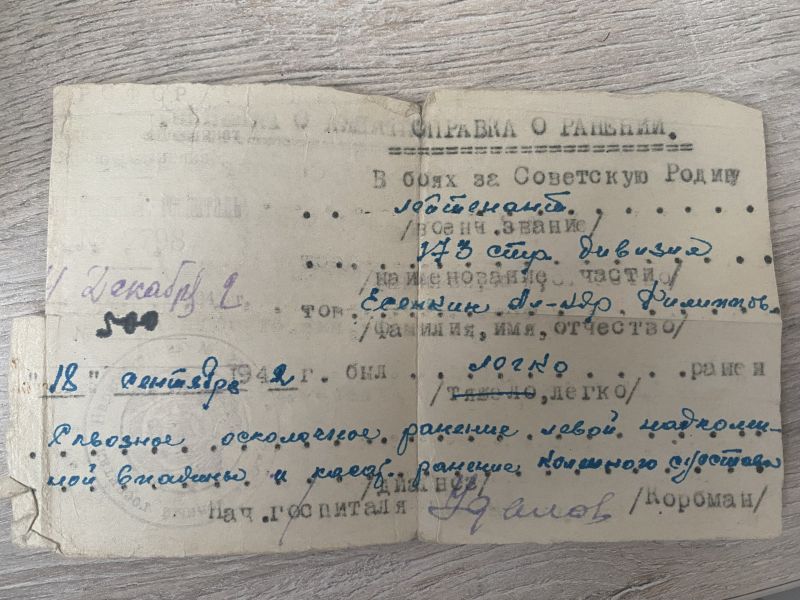 СПРАВКА О РАНЕНИИ.
В боях за Советскую Родину
лейтенант
/военн.звание/
173 стр. дивизия
/наименование части/
11 декабря 2
тов. Есенкин Ал-ндр Филиппов.
/фамилия,имя,отчество/
"18" сентября 1942 г. был легко ранен
/тяжело,легко/
Сквозное осколочное ранение левой надколен-
ной впадины и касат. ранение коленного сустава
/диагноз/
Нач.госпиталя /Корбман/